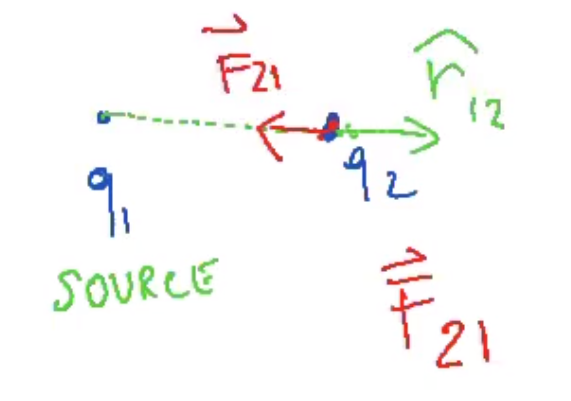 F⃗21
r̂12
q1
q2
SOURCE
F⃗21